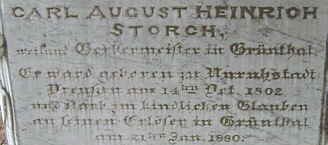 CARL AUGUST HEINRICH
STORCH,
weiland Gerbermeister in Grünthal.
Er ward geboren zu Neustadt
Preusen am 14ten Oct. 1802
und starb im kindlichen Glauben
an seinen Erlöser in Grünthal
am 21ten Jan. 1880.